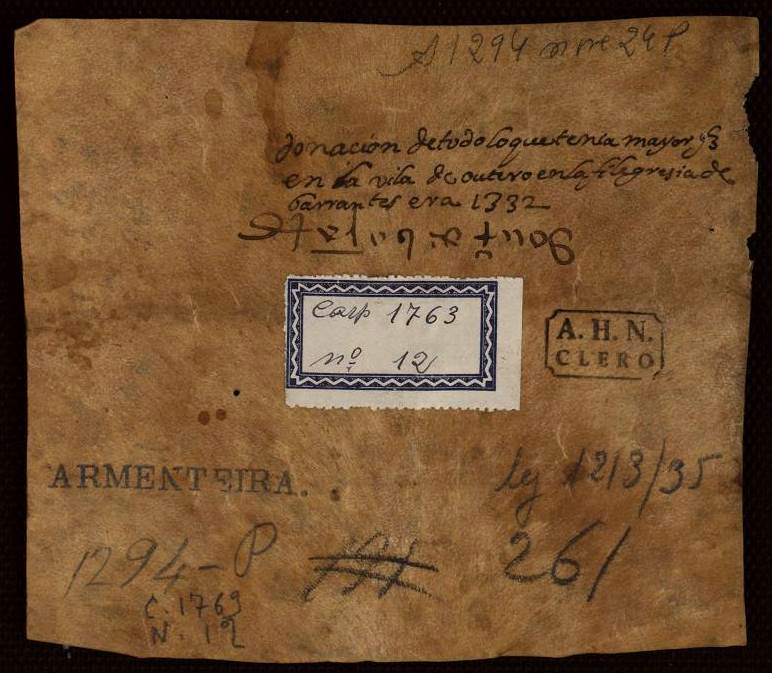 A 1294 nove 24 P
donación de todo lo que tenia mayor
en la vila de outero en la filegresia de
barrantes era 1332
Carp 1763
nº 12
A. H. N.
CLERO
ARMENTEIRA.
leg 1213/35
1294-P
261
C. 1763
N. 12